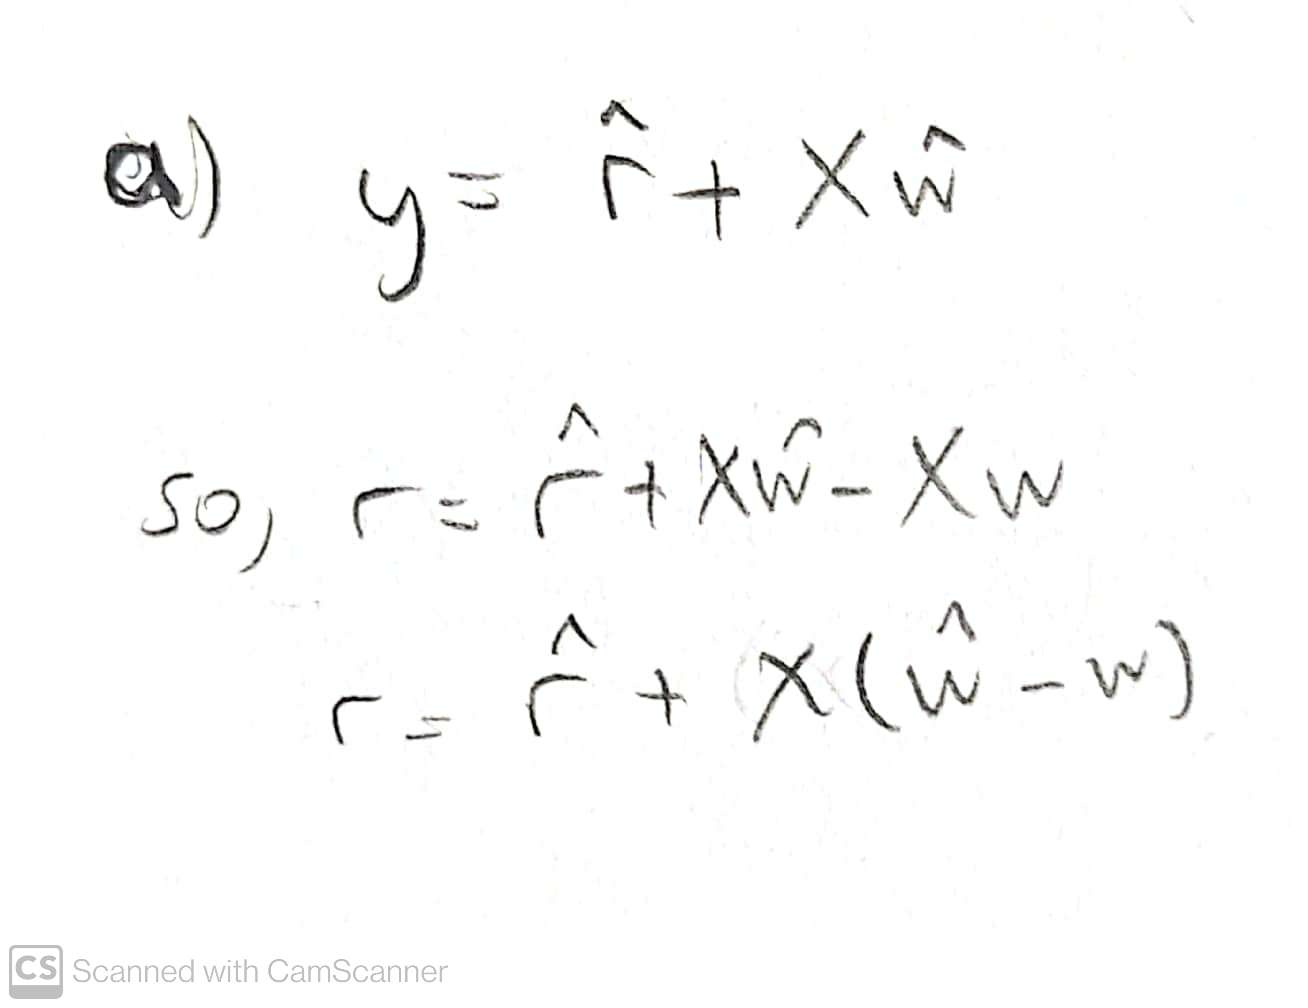 a) y = r̂ + Xŵ
so, r = r̂ + Xŵ - Xw
r = r̂ + X(ŵ - w)
CS Scanned with CamScanner